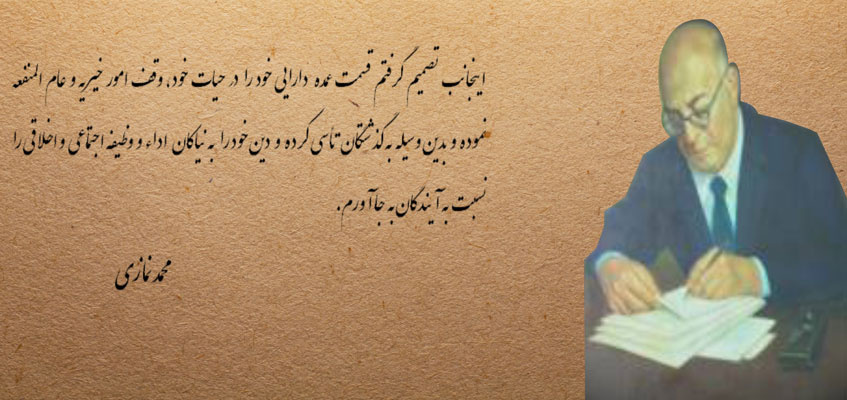 اینجانب تصمیم گرفتم قسمت عمده دارایی خود را در حیات خود، وقف امور خیریه و عام المنفعه
نموده و بدین وسیله به گذشتگان تأسی کرده و دین خود را به نیاکان اداء و وظیفه اجتماعی و اخلاقی را
نسبت به آیندگان به جا آورم.
محمد نمازی